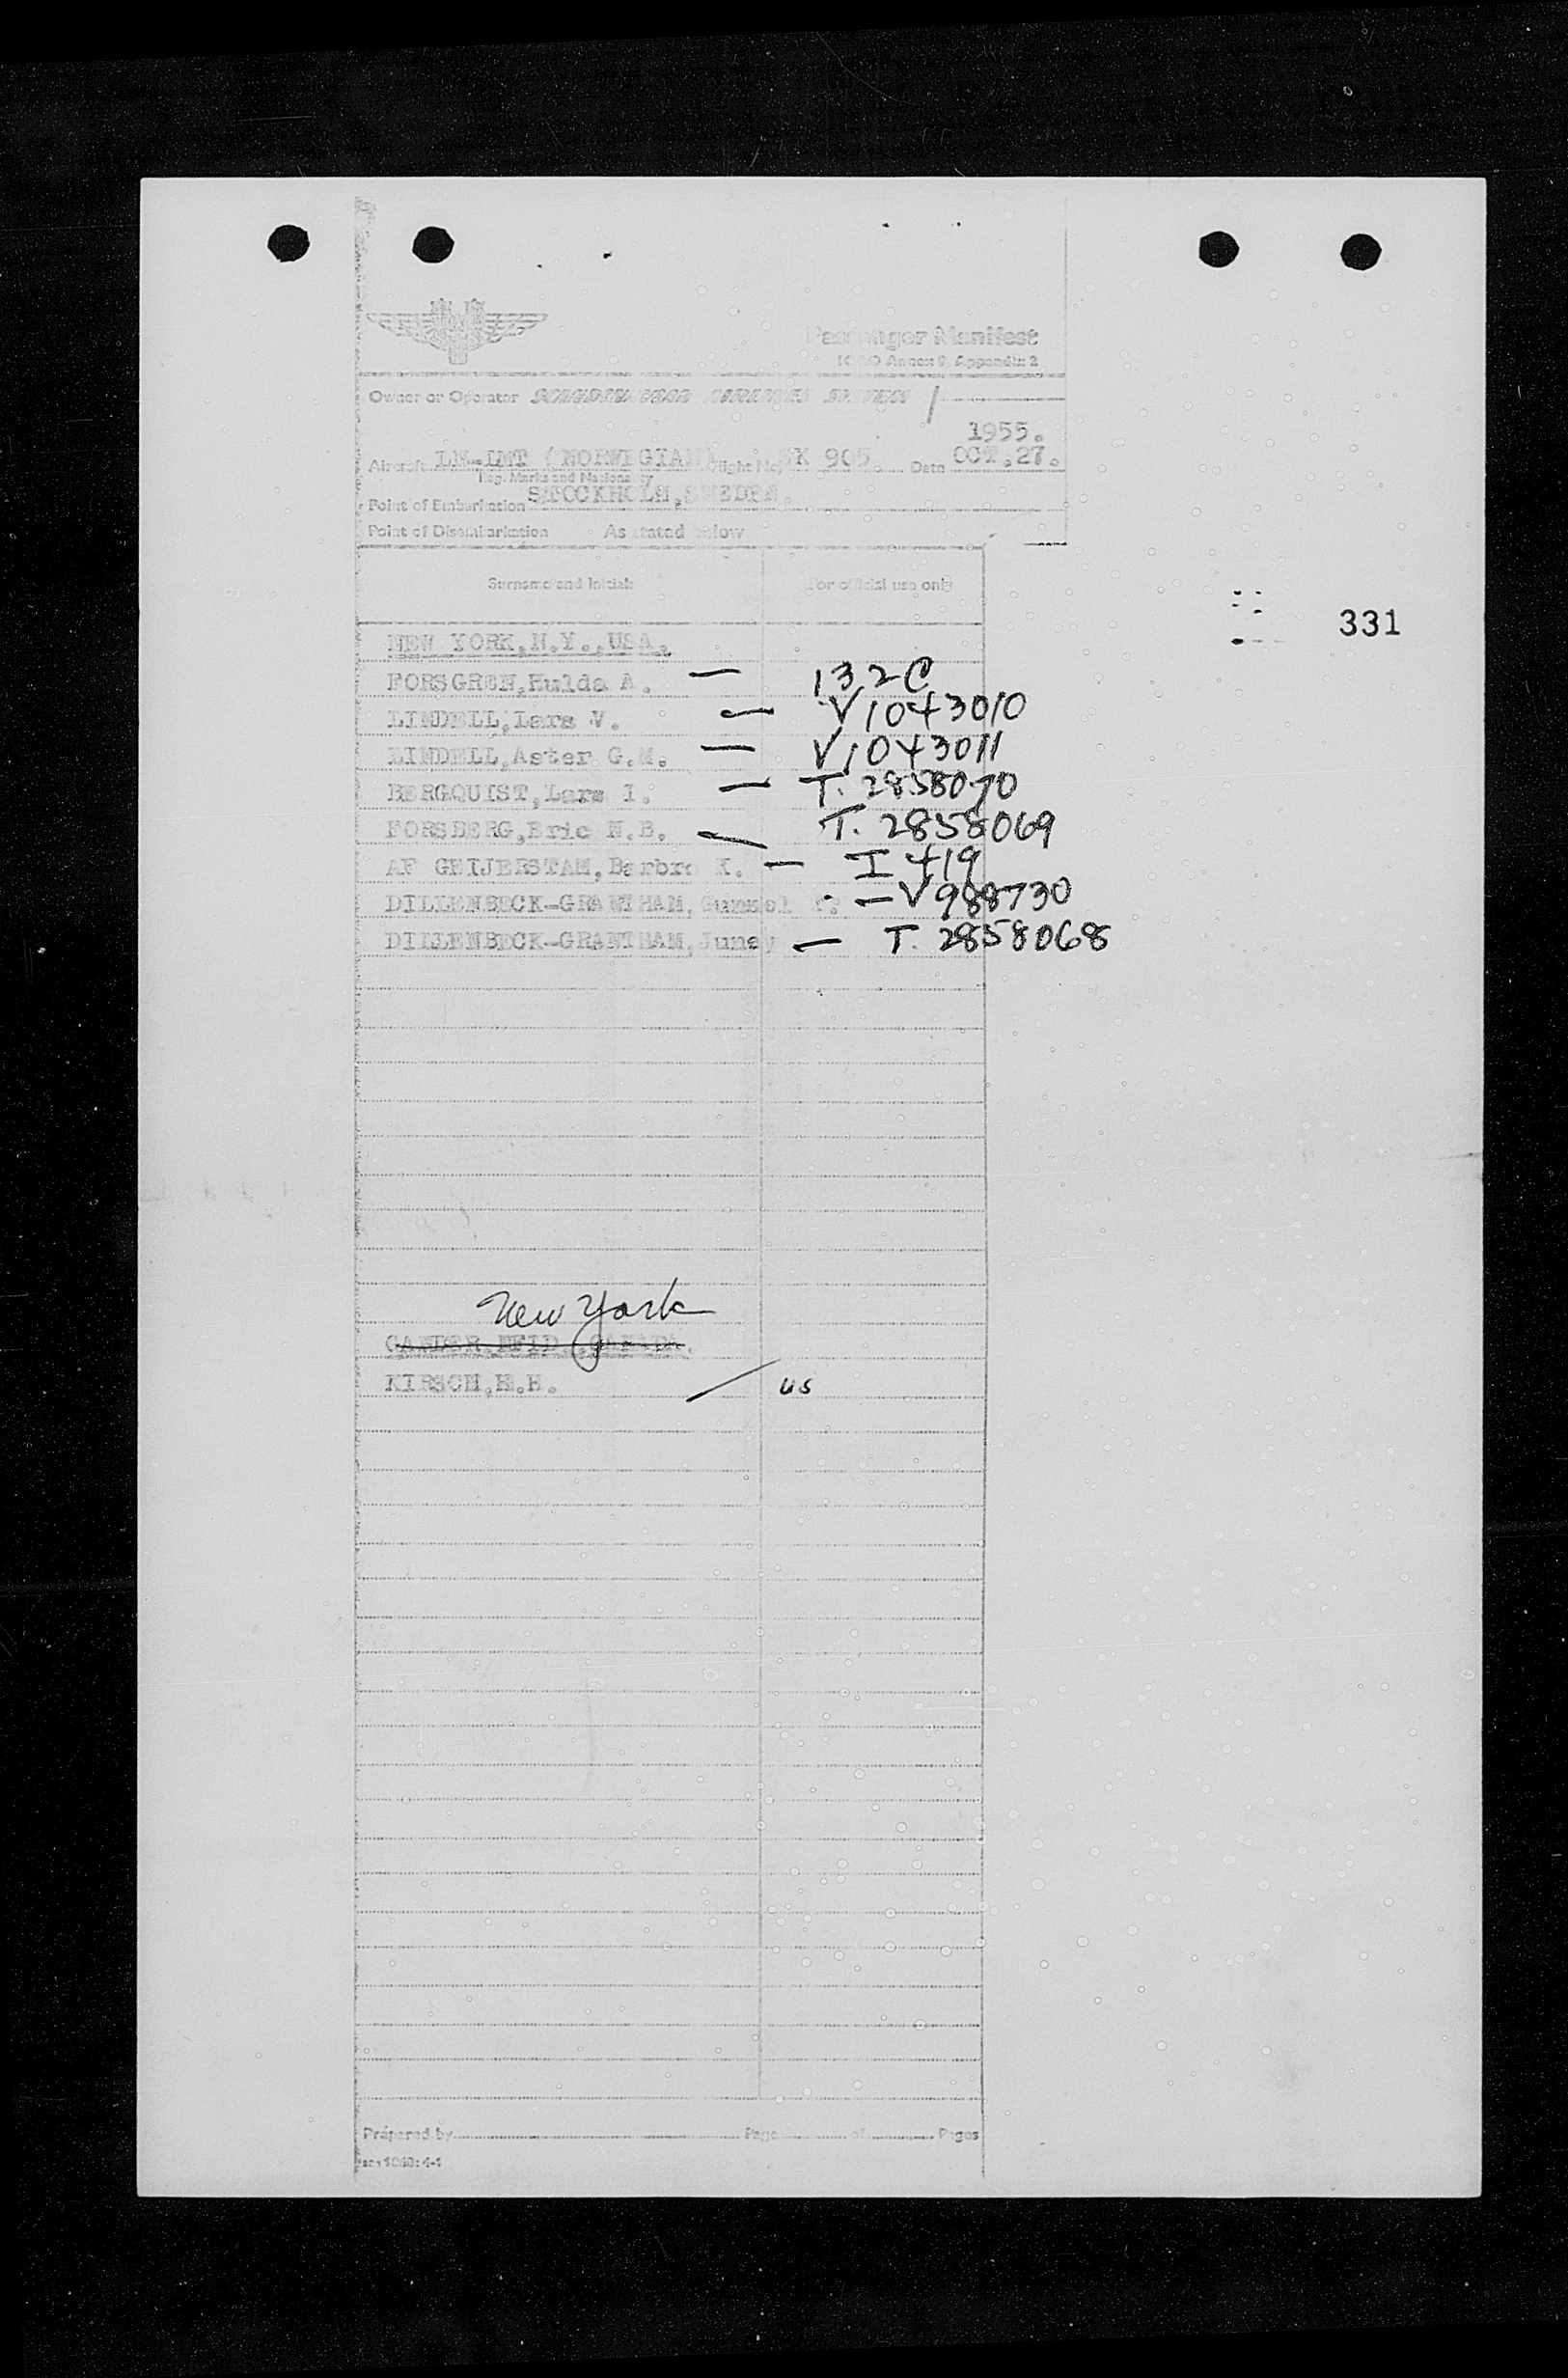 Passenger Manifest
ICAO Annex 9, Appendix 2
Owner or Operator SCANDINAVIAN AIRLINES SYSTEM
1955.
Aircraft LN-LMT (NORWEGIAN) Flight No. SK 905 Date OCT.27.
Reg. Marks and Nationality
Point of Embarkation STOCKHOLM,SWEDEN.
Point of Disembarkation As stated below
Surname and Initials For official use only
331
NEW YORK,N.Y.,USA.
FORSGREN,Hulda A. — 132C
LINDELL,Lars V. — V1043010
LINDELL,Aster G.M. — V1043011
BERGQUIST,Lars I. — T. 2858070
FORSBERG,Eric N.B. — T. 2858069
AF GEIJERSTAM,Barbro K. — I 419
DILLENBECK-GRANTHAM, — V988730
DILLENBECK-GRANTHAM,Juney — T. 2858068
New York
GANDER,NFLD.,CANADA.
KIRSCH,H.H. US
Prepared by Page of Pages